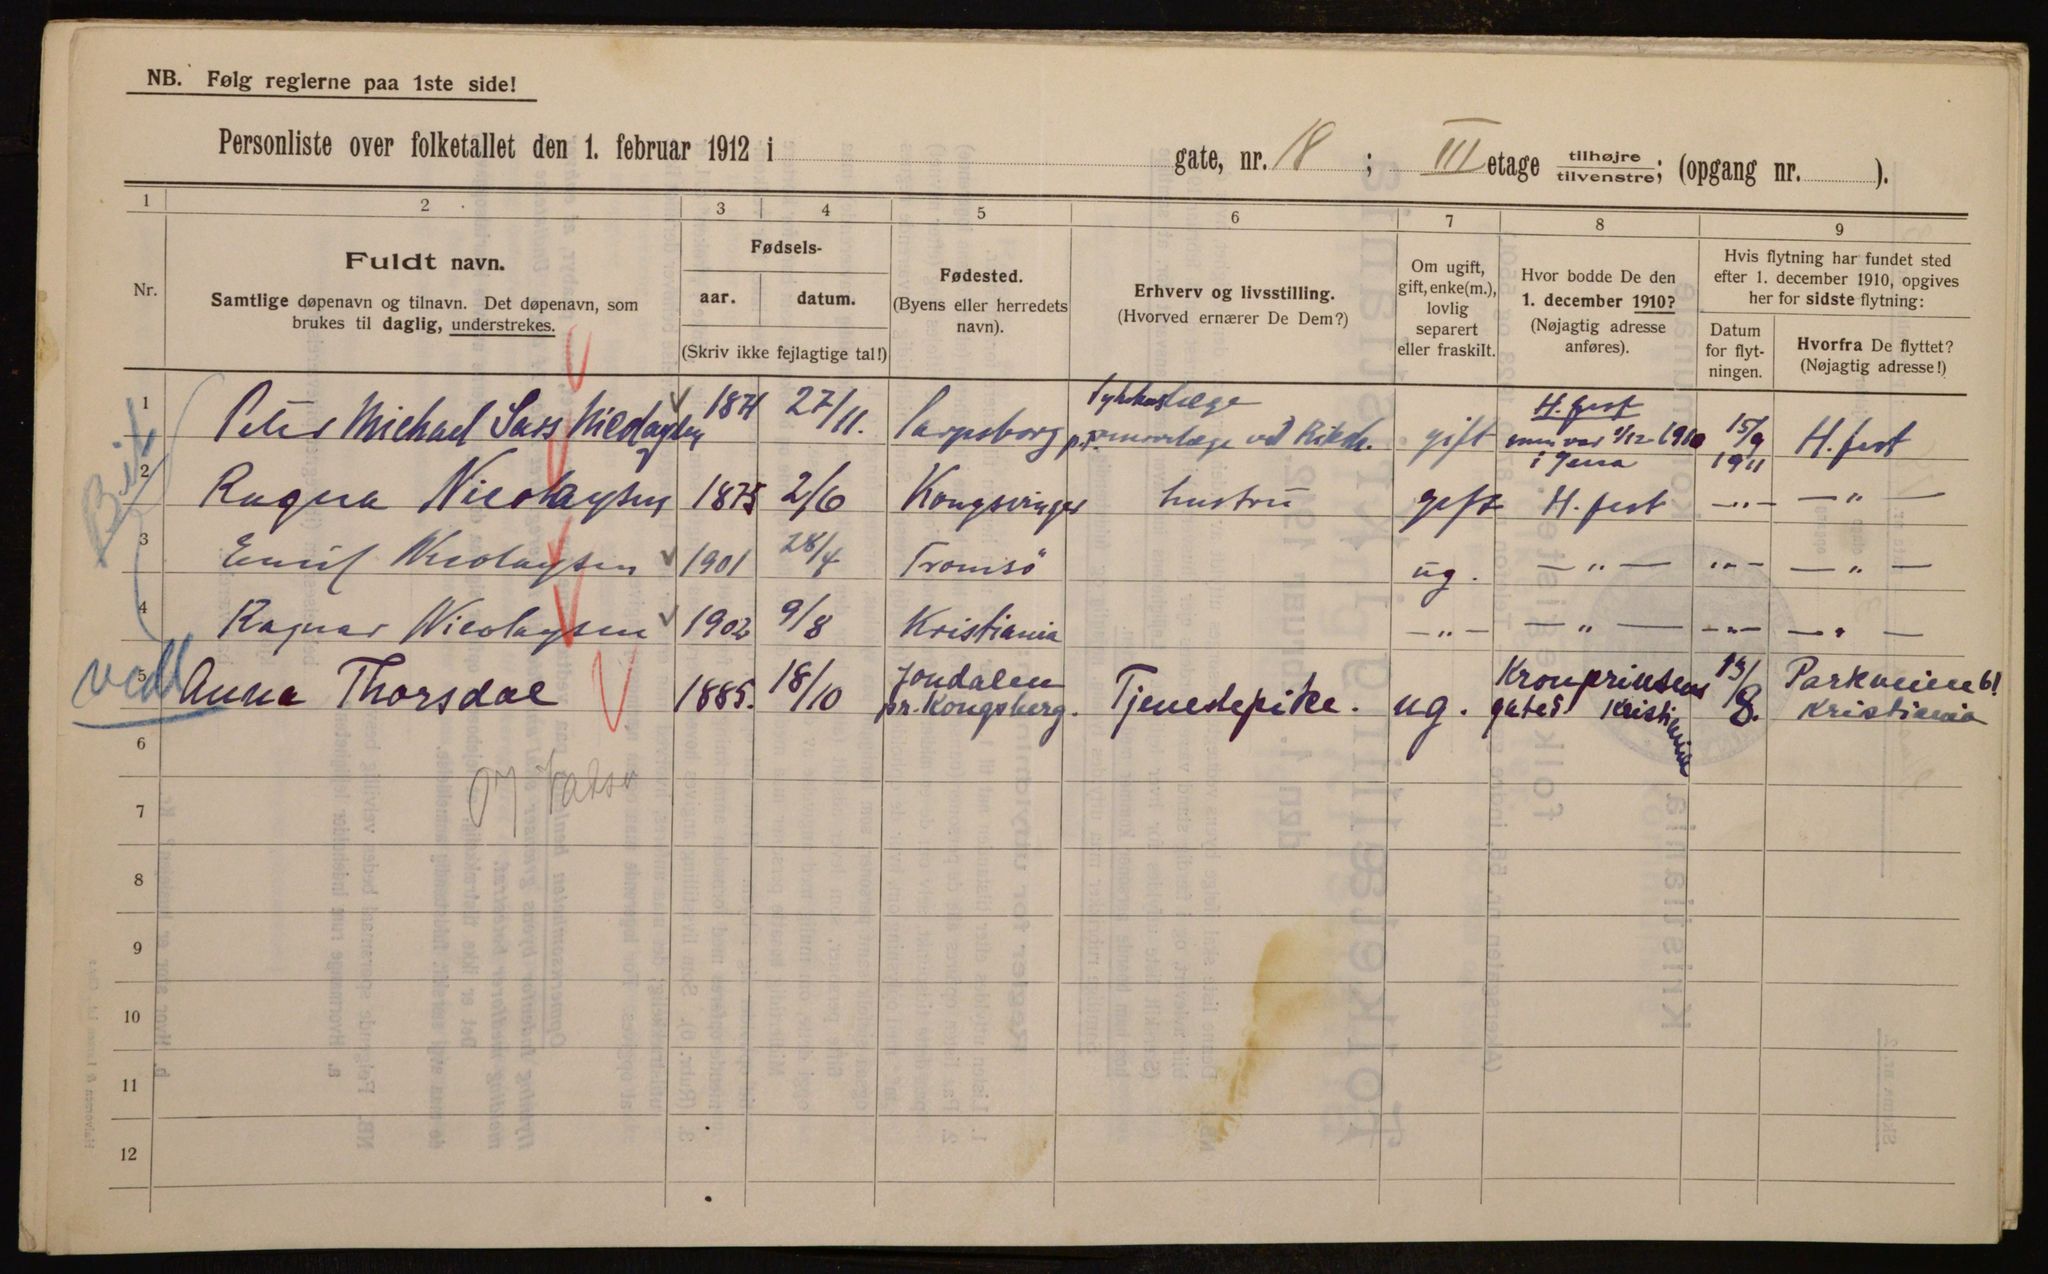 NB. Følg reglerne paa 1ste side!
Personliste over folketallet den 1. februar 1912 i gate, nr. 18 ; III etage tilhøjre tilvenstre; (opgang nr. ).
1 2 3 4 5 6 7 8 9
Nr.
Fuldt navn.
Samtlige døpenavn og tilnavn. Det døpenavn, som
brukes til daglig, understrekes.
Fødsels-
aar. datum.
(Skriv ikke fejlagtige tal!)
Fødested.
(Byens eller herredets
navn).
Erhverv og livsstilling.
(Hvorved ernærer De Dem?)
Om ugift,
gift, enke(m.),
lovlig
separert
eller fraskilt.
Hvor bodde De den
1. december 1910?
(Nøjagtig adresse
anføres).
Hvis flytning har fundet sted
efter 1. december 1910, opgives
her for sidste flytning:
Datum
for flyt-
ningen.
Hvorfra De flyttet?
(Nøjagtig adresse!)
1 Peter Michael Sass Nicolaysen 1871 27/11. Sarpsborg gift H. fest 1/12 1910 i Jena 15/9 1911 H. fest
2 Ragna Nicolaysen 1875 2/6 Kongsvinger hustru gift H. fest — " — — " —
3 Emil Nicolaysen 1901 28/4 Tromsö ug. — " — — " — — " —
4 Ragnar Nicolaysen 1902 9/8 Kristiania — " — — " — — " — — " —
5 Anna Thorsdal 1885. 18/10 Jondalen pr. Kongsberg. Tjenestepike. ug. Kronprinsens gate 5 Kristiania 8. Parkveien 61 Kristiania
6
7
8
9
10
11
12